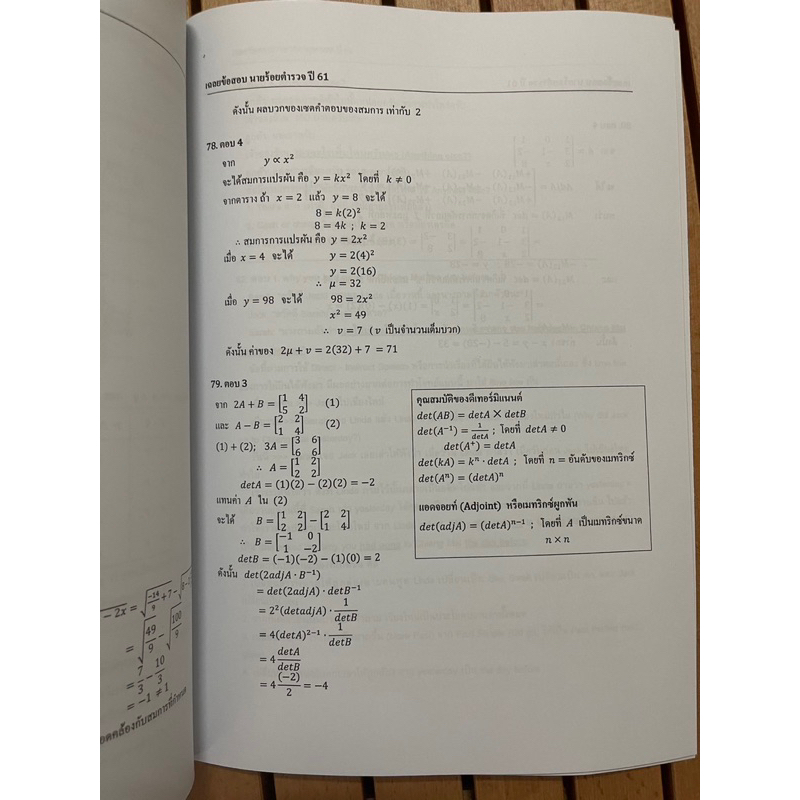 เฉลยข้อสอบ นายร้อยตำรวจ ปี 61
ดังนั้น ผลบวกของเซตคำตอบของสมการ เท่ากับ 2
78. ตอบ 4
จาก y ∝ x²
จะได้สมการแปรผัน คือ y = kx² โดยที่ k ≠ 0
จากตาราง ถ้า x = 2 แล้ว y = 8 จะได้
8 = k(2)²
8 = 4k ; k = 2
∴ สมการการแปรผัน คือ y = 2x²
เมื่อ x = 4 จะได้ y = 2(4)²
y = 2(16)
∴ μ = 32
เมื่อ y = 98 จะได้ 98 = 2x²
x² = 49
∴ v = 7 (v เป็นจำนวนเต็มบวก)
ดังนั้น ค่าของ 2μ + v = 2(32) + 7 = 71
79. ตอบ 3
จาก 2A + B = [1 4
5 2] (1)
และ A − B = [2 2
1 4] (2)
(1) + (2); 3A = [3 6
6 6]
∴ A = [1 2
2 2]
detA = (1)(2) − (2)(2) = −2
แทนค่า A ใน (2)
จะได้ B = [1 2
2 2] − [2 2
1 4]
∴ B = [−1 0
1 −2]
detB = (−1)(−2) − (1)(0) = 2
ดังนั้น det(2adjA · B⁻¹)
= det(2adjA) · detB⁻¹
= 2²(detadjA) · 1/detB
= 4(detA)²⁻¹ · 1/detB
= 4 detA/detB
= 4 (−2)/2 = −4
คุณสมบัติของดีเทอร์มิแนนต์
det(AB) = detA × detB
det(A⁻¹) = 1/detA ; โดยที่ detA ≠ 0
det(A⁺) = detA
det(kA) = kⁿ · detA ; โดยที่ n = อันดับของเมทริกซ์
det(Aⁿ) = (detA)ⁿ
แอดจอยท์ (Adjoint) หรือเมทริกซ์ผูกพัน
det(adjA) = (detA)ⁿ⁻¹ ; โดยที่ A เป็นเมทริกซ์ขนาด
n × n
= 49/9 − 100/9
= 7/3 − 10/3
= −1 ≠ 1